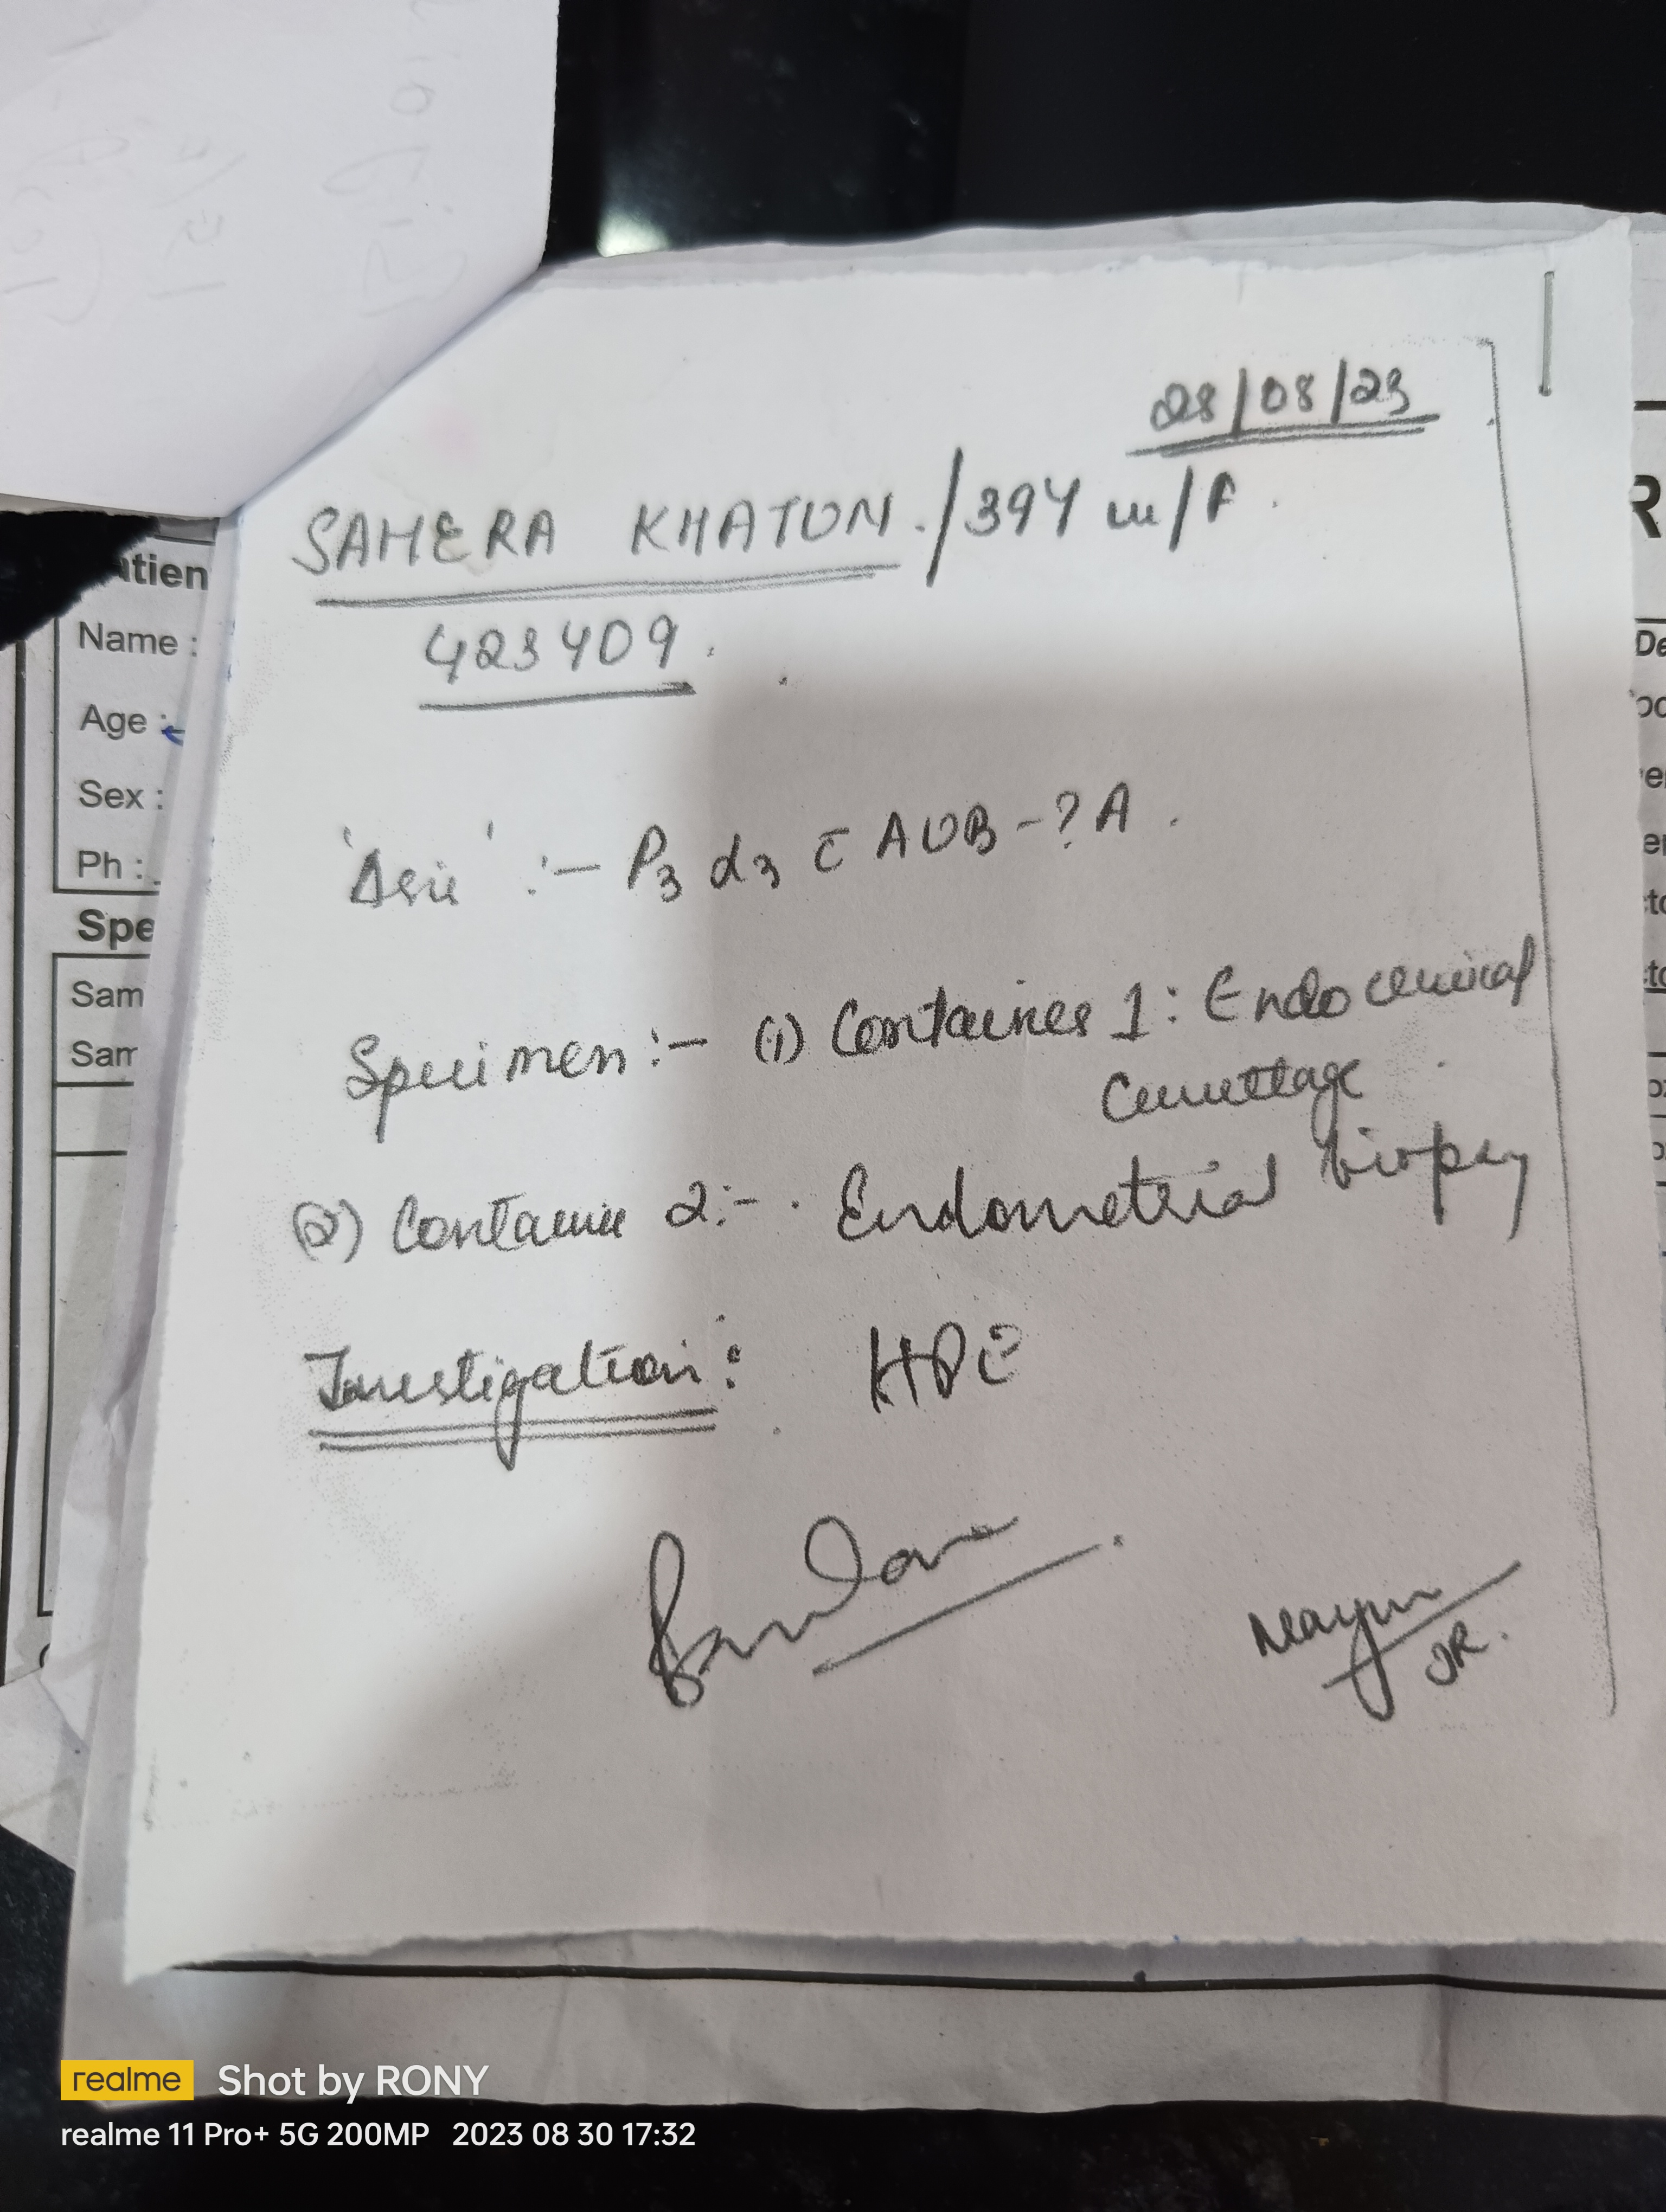 28/08/23
SAHERA KHATUN./39Y m/F.
423409.
P3 d3 c̄ AUB-?A.
Specimen:- (1) Container 1: Endocervical
Curettage
(2) Container 2:- Endometrial biopsy
Investigation: HPE
JR.
atien
Name :
Age :
Sex :
Ph :
Spe
Sam
Sam
R
De
realme Shot by RONY
realme 11 Pro+ 5G 200MP 2023 08 30 17:32